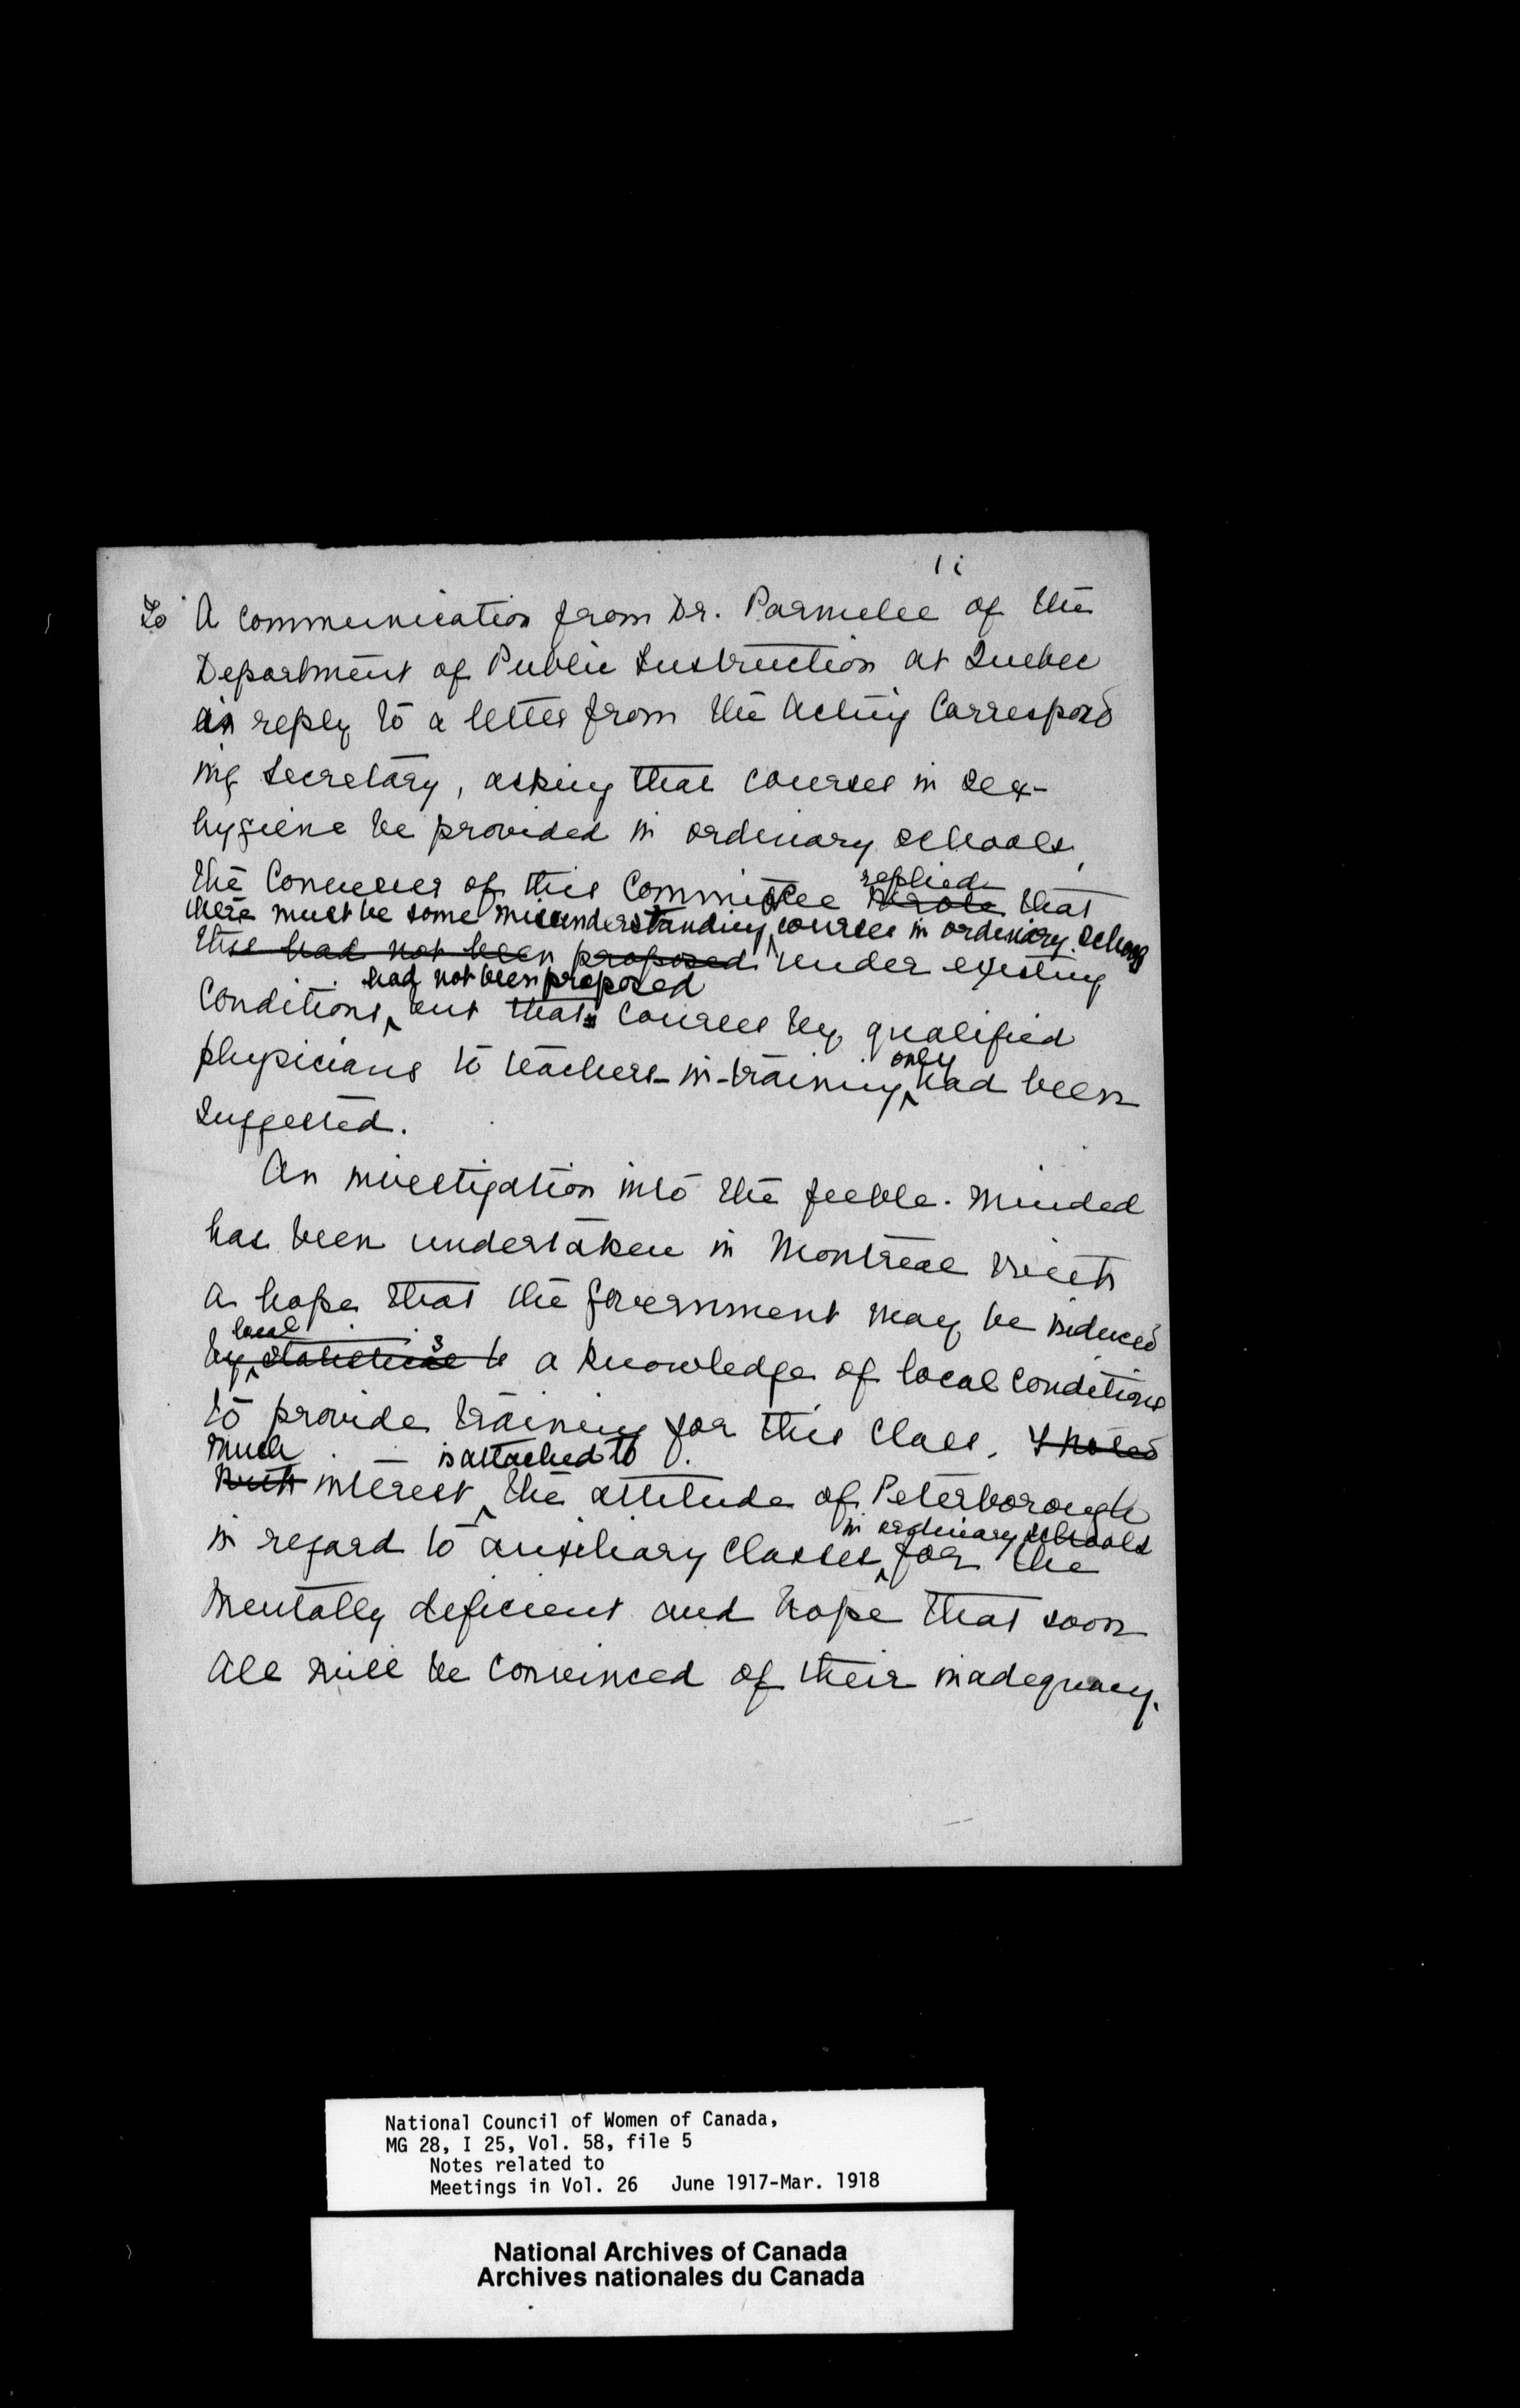 1 i
To A communication from Dr. Parmelee of the
Department of Public Instruction at Quebec
in reply to a letter from the Acting Correspond
ing Secretary, asking that courses in sex-
hygiene be provided in ordinary schools,
replied
the Convener of this Committee wrote that
there must be some misunderstanding, courses in ordinary schools
this had not been proposed under existing
had not been proposed
conditions, but that courses by qualified
only
physicians to teachers-in-training had been
suggested.
An investigation into the feeble-minded
has been undertaken in Montreal with
a hope that the government may be induced
local
by statistics to a knowledge of local conditions
to provide training for this class. I noted
Much is attached to
with interest the attitude of Peterborough
in ordinary schools
in regard to auxiliary classes for the
mentally deficient and hope that soon
all will be convinced of their inadequacy.
National Council of Women of Canada,
MG 28, I 25, Vol. 58, file 5
Notes related to
Meetings in Vol. 26 June 1917-Mar. 1918
National Archives of Canada
Archives nationales du Canada